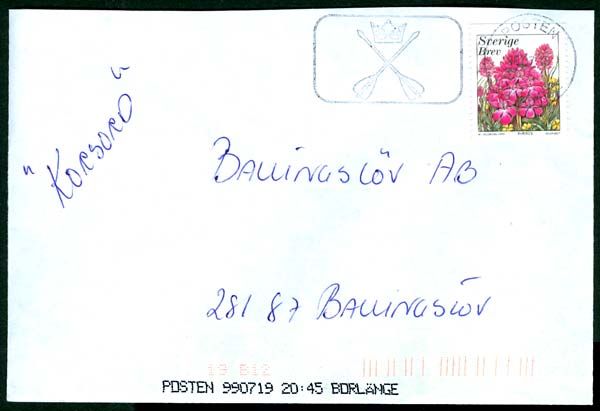 POSTEN
Sverige
Brev
"Korsord"
Ballingslöv AB
281 87 Ballingslöv
19 B12
POSTEN 990719 20:45 BORLÄNGE